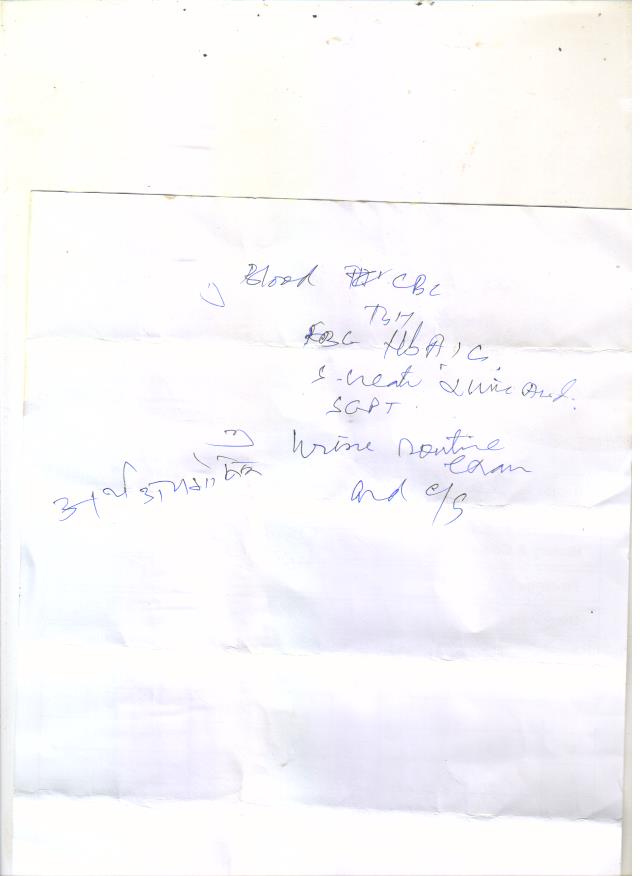 1) Blood CBC
TSH
FBG HbA1C
S. Creat & Uric Acid.
SGPT.
2) Urine routine
exam
and C/S